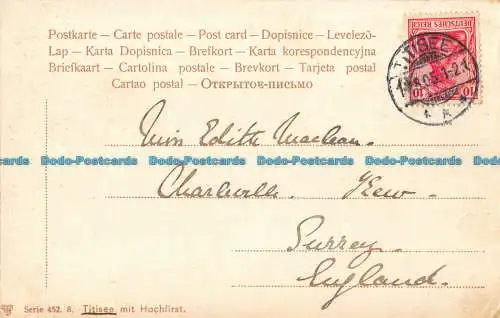 Postkarte – Carte postale – Post card – Dopisnice – Levelező-
Lap – Karta Dopisnica – Brefkort – Karta korespondencyjna
Briefkaart – Cartolina postale – Brevkort – Tarjeta postal
Cartao postal – Открытое-письмо
DEUTSCHES REICH
10 10
TITISEE
Miss Edith Maclean.
Dodo-Postcards Dodo-Postcards Dodo-Postcards Dodo-Postcards
Charleville. Kew.
Surrey.
England.
Dodo-Postcards Dodo-Postcards Dodo-Postcards Dodo-Postcards
Serie 452. 8. Titisee mit Hochfirst.